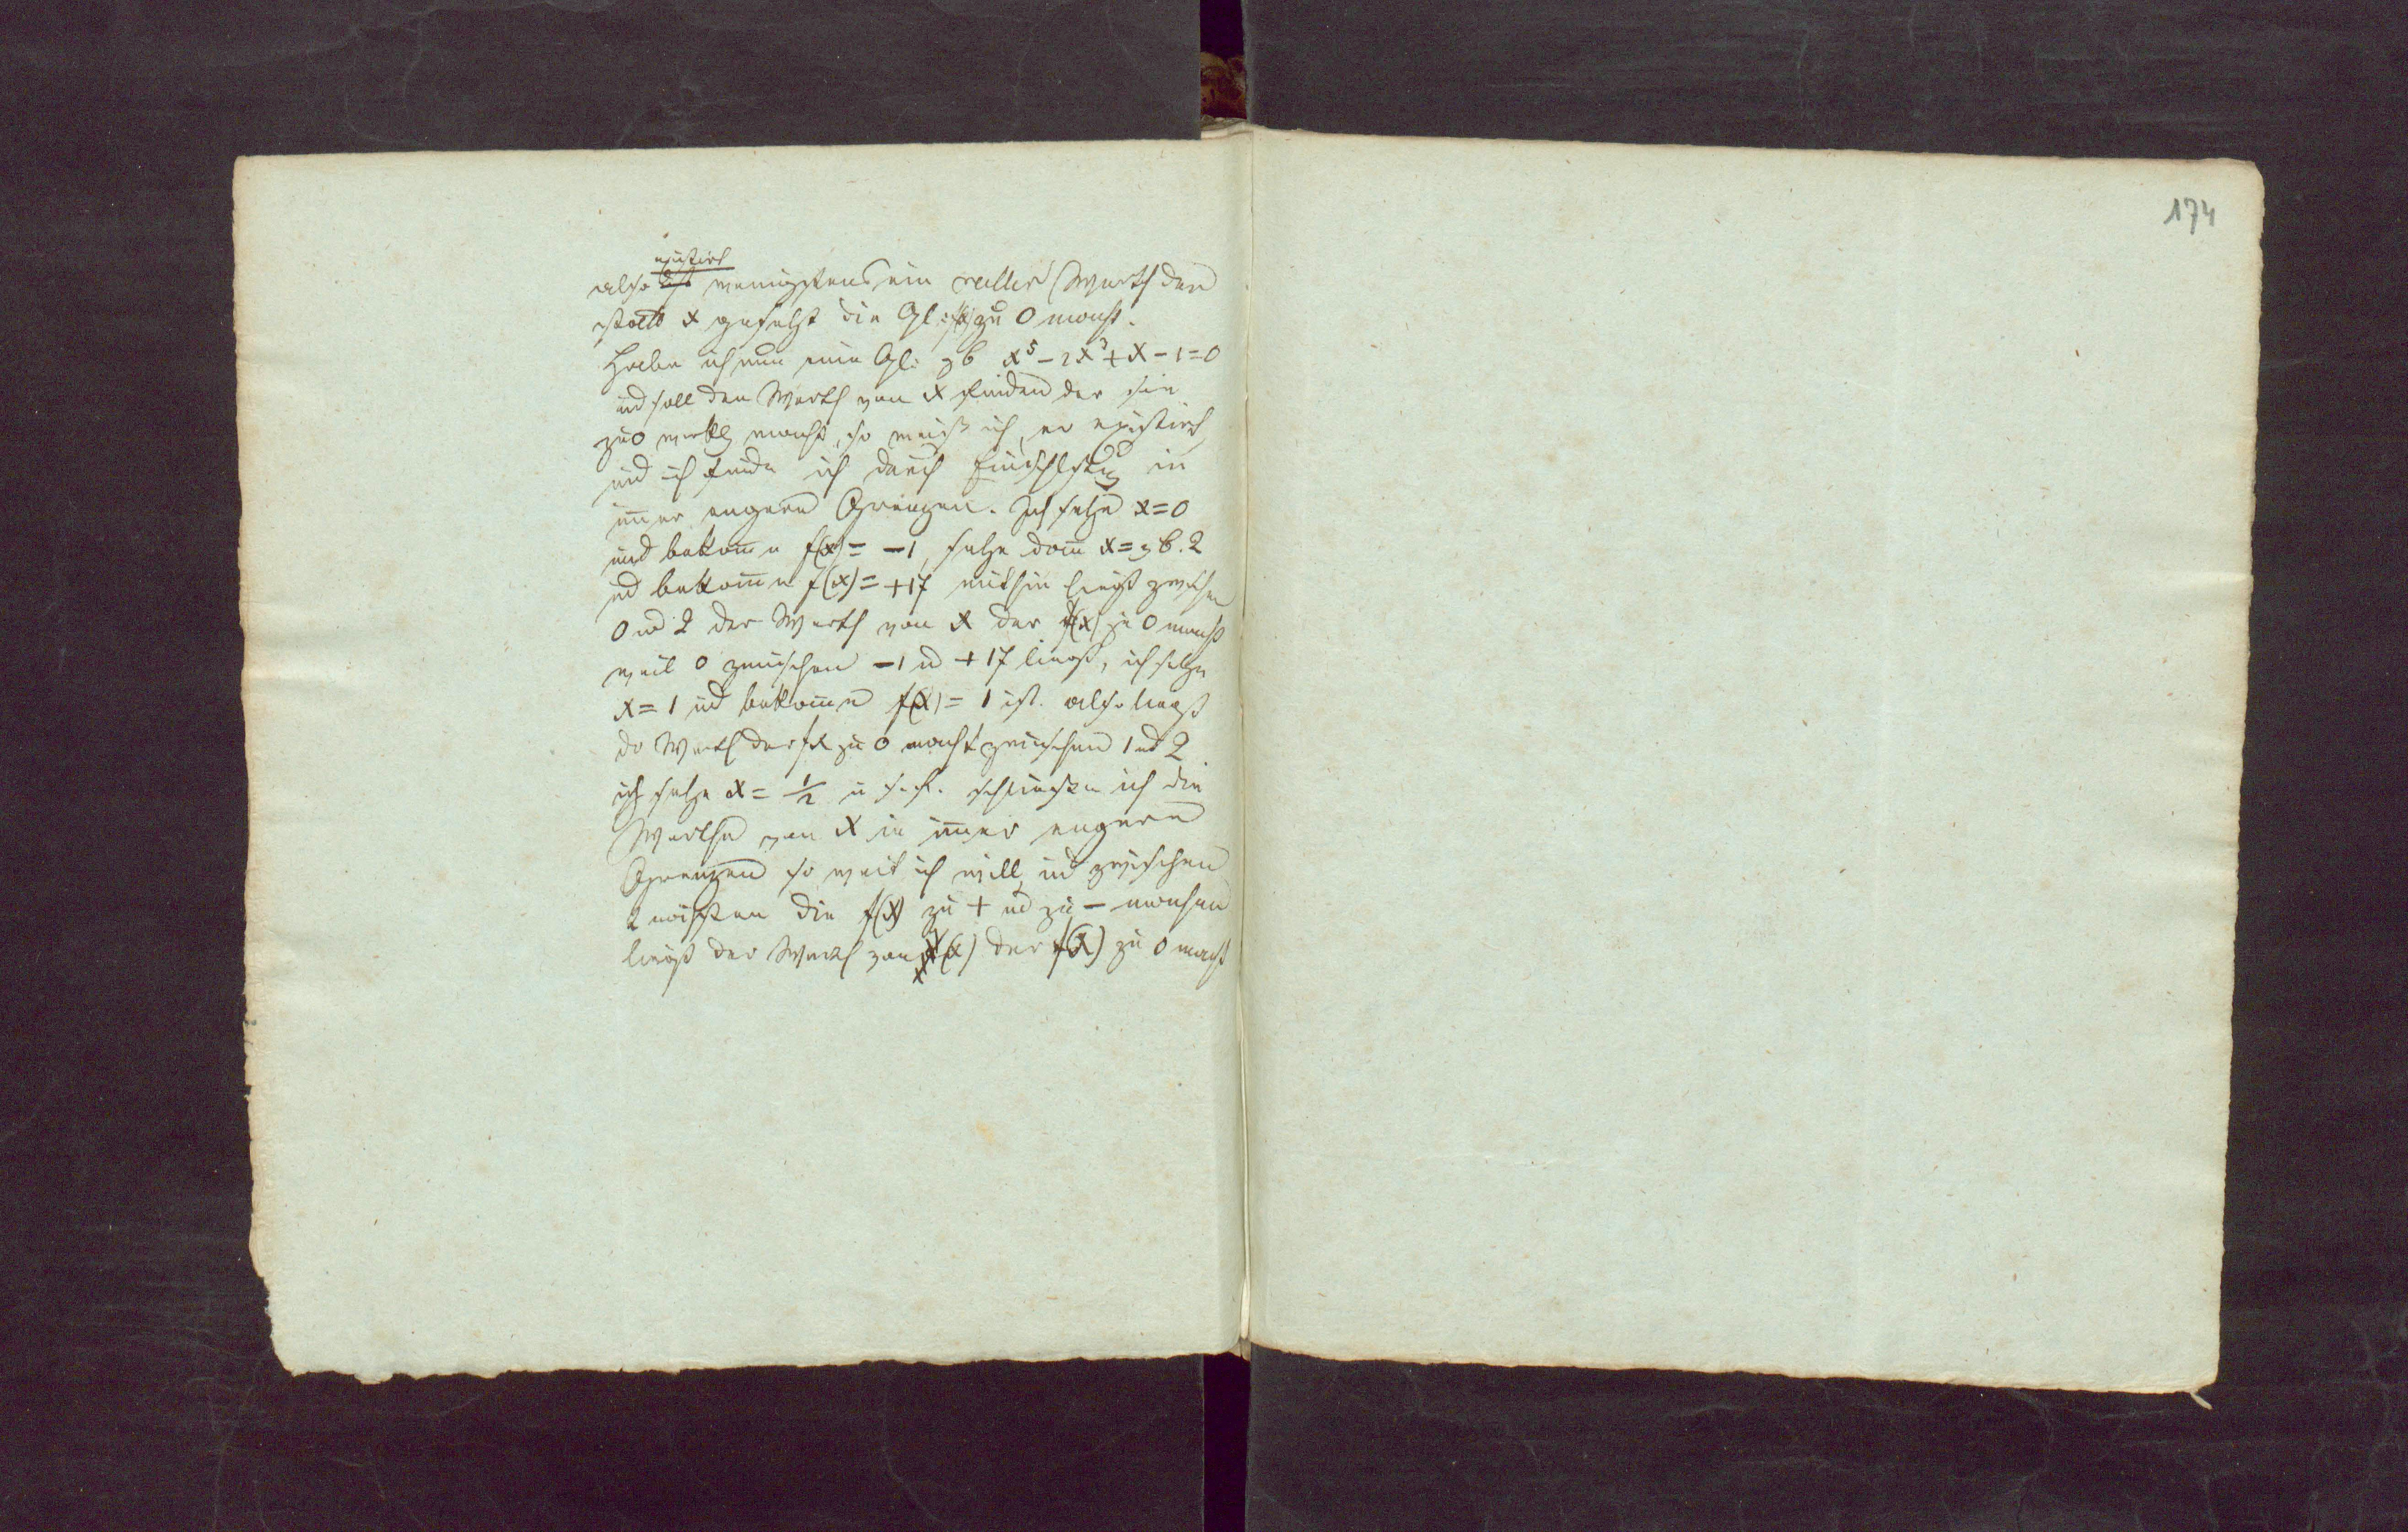 174
existirt
also ist wenigstens ein reeller Werth der
statt x gesetzt die Gl: f(x) zu 0 macht.
Habe ich nun eine Gl: zb x⁵ - 2x³ + x - 1 = 0
und soll den Werth von x finden der sie
zu 0 macht, so weiß ich, er existirt,
und ich finde ich durch Einschlßung in
im̅er engere Grenzen. Ich setze x = 0
und bekom̅e f(x) = -1, setze dan̅ x = zb. 2
und bekom̅e f(x) = +17 mithin liegt zwischen
0 und 2 der Werth von x der f(x) zu 0 macht
weil 0 zwischen -1 u +17 liegt, ich setze
x = 1 und bekom̅e f(x) = 1 ist. also liegt
der Werth der zu 0 macht zwischen 1 und 2
ich setze x = 1/2 u s.f. schließe ich die
Werthe von x in im̅er engere
Grenzen so weit ich will, und zwischen
2 nächsten die f(x) zu + und zu - machen
liegt der Werth von x der f(x) zu 0 macht